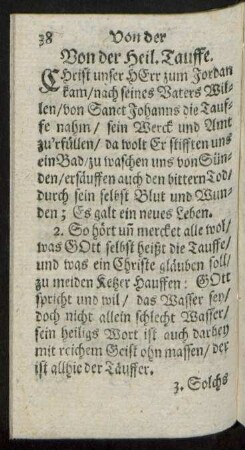 38 Von der
Von der Heil. Tauffe.
CHrist unser HErr zum Jordan
kam/nach seines Vaters Wil-
len/von Sanct Johanns die Tauf-
fe nahm/ sein Werck und Amt
zu'rfüllen/ da wolt Er stifften uns
ein Bad/zu waschen uns von Sün-
den/ersäuffen auch den bittern Tod/
durch sein selbst Blut und Wun-
den; Es galt ein neues Leben.
2. So hört uñ mercket alle wol/
was GOtt selbst heißt die Tauffe/
und was ein Christe gläuben soll/
zu meiden Ketzer Hauffen: GOtt
spricht und wil/ das Wasser sey/
doch nicht allein schlecht Wasser/
sein heiligs Wort ist auch darbey
mit reichem Geist ohn massen/ der
ist allhie der Täuffer.
3. Solchs